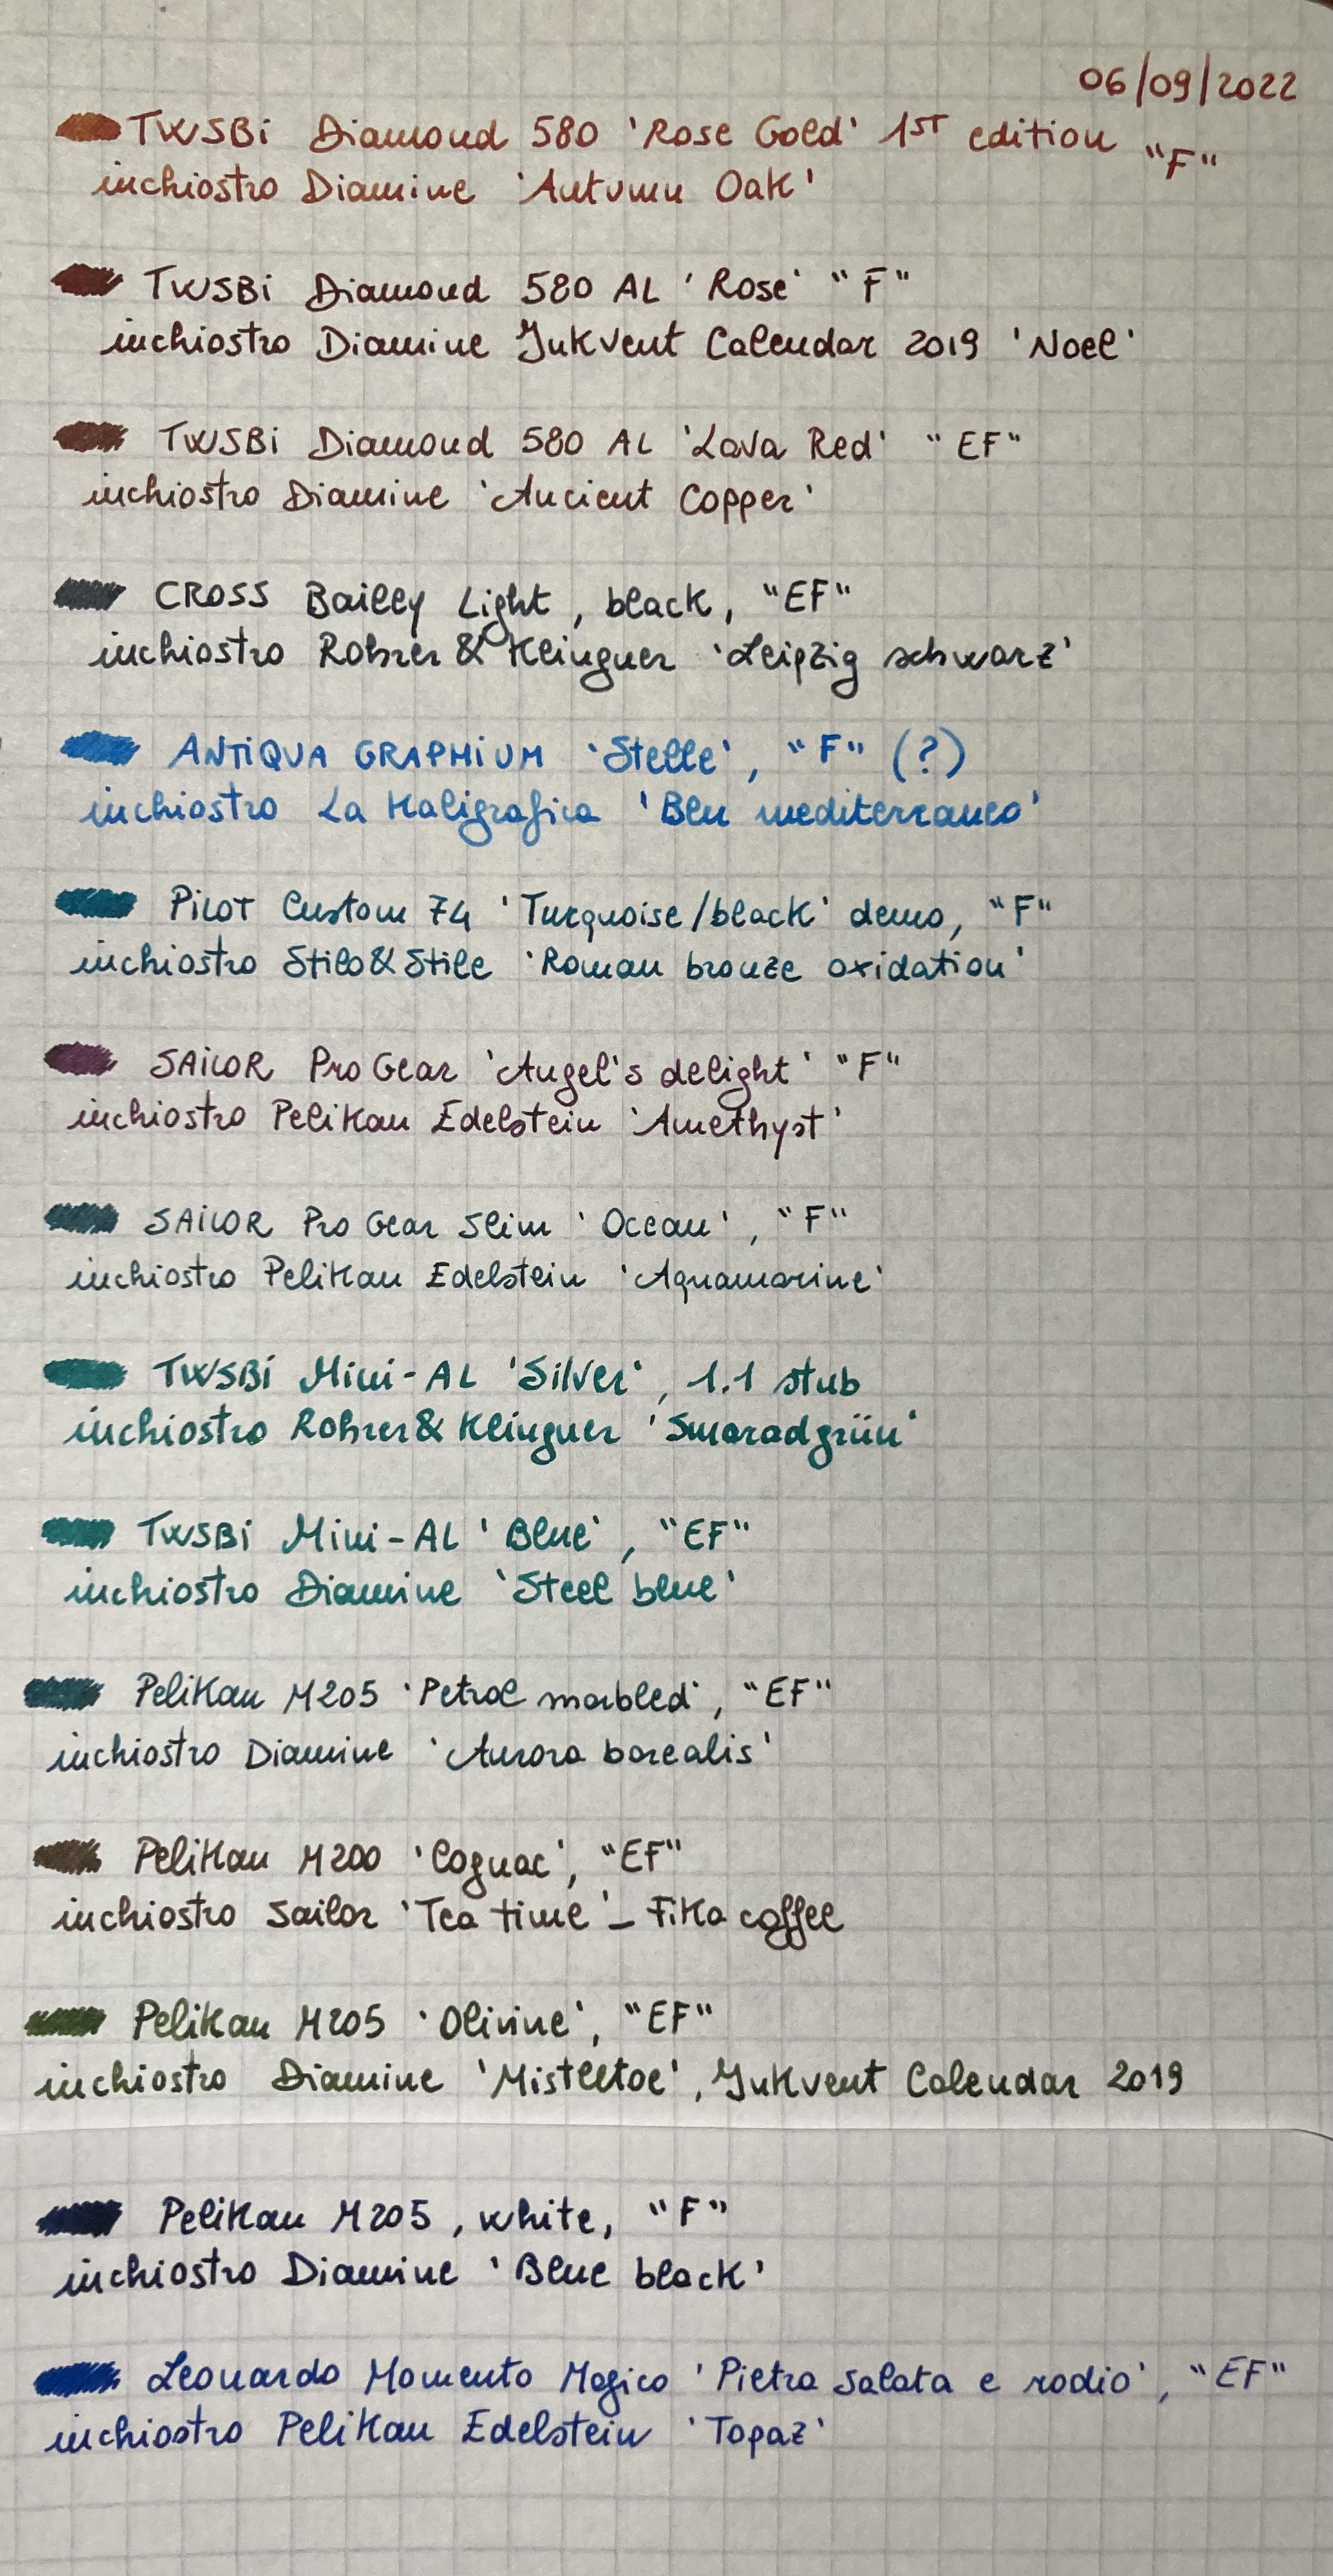 06/09/2022
TWSBi Diamond 580 'Rose Gold' 1ST edition "F"
inchiostro Diamine 'Autumn Oak'
TWSBi Diamond 580 AL 'Rose' "F"
inchiostro Diamine InkVent Calendar 2019 'Noel'
TWSBi Diamond 580 AL 'Lava Red' "EF"
inchiostro Diamine 'Ancient Copper'
CROSS Bailey Light, black, "EF"
inchiostro Rohrer & Klinguer 'Leipzig schwarz'
ANTiQUA GRAPHiUM 'Stelle', "F" (?)
inchiostro La Kaligrafica 'Blu mediterraneo'
PiLOT Custom 74 'Turquoise/black' demo, "F"
inchiostro Stilo&Stile 'Roman bronze oxidation'
SAiLOR Pro Gear 'Angel's delight' "F"
inchiostro Pelikan Edelstein 'Amethyst'
SAiLOR Pro Gear Slim 'Ocean', "F"
inchiostro Pelikan Edelstein 'Aquamarine'
TWSBi Mini-AL 'Silver', 1.1 stub
inchiostro Rohrer & Klinguer 'Smaradgrün'
TWSBi Mini-AL 'Blue', "EF"
inchiostro Diamine 'Steel blue'
Pelikan M205 'Petrol marbled', "EF"
inchiostro Diamine 'Aurora borealis'
Pelikan M200 'Cognac', "EF"
inchiostro Sailor 'Tea time' - Fika coffee
Pelikan M205 'Olivine', "EF"
inchiostro Diamine 'Mistletoe', InkVent Calendar 2019
Pelikan M205, white, "F"
inchiostro Diamine 'Blue black'
Leonardo Momento Magico 'Pietra salata e rodio', "EF"
inchiostro Pelikan Edelstein 'Topaz'